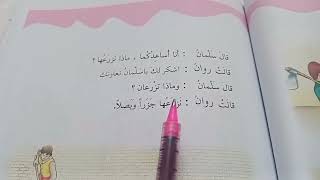 قال سلمان : أنا أساعدكما ، ماذا نزرعها ؟
قالت روان : اشكر لك ياسلمان تعاونك
قال سلمان : وماذا تزرعان ؟
قالت روان : نزرعها جزراً وبصلاً.